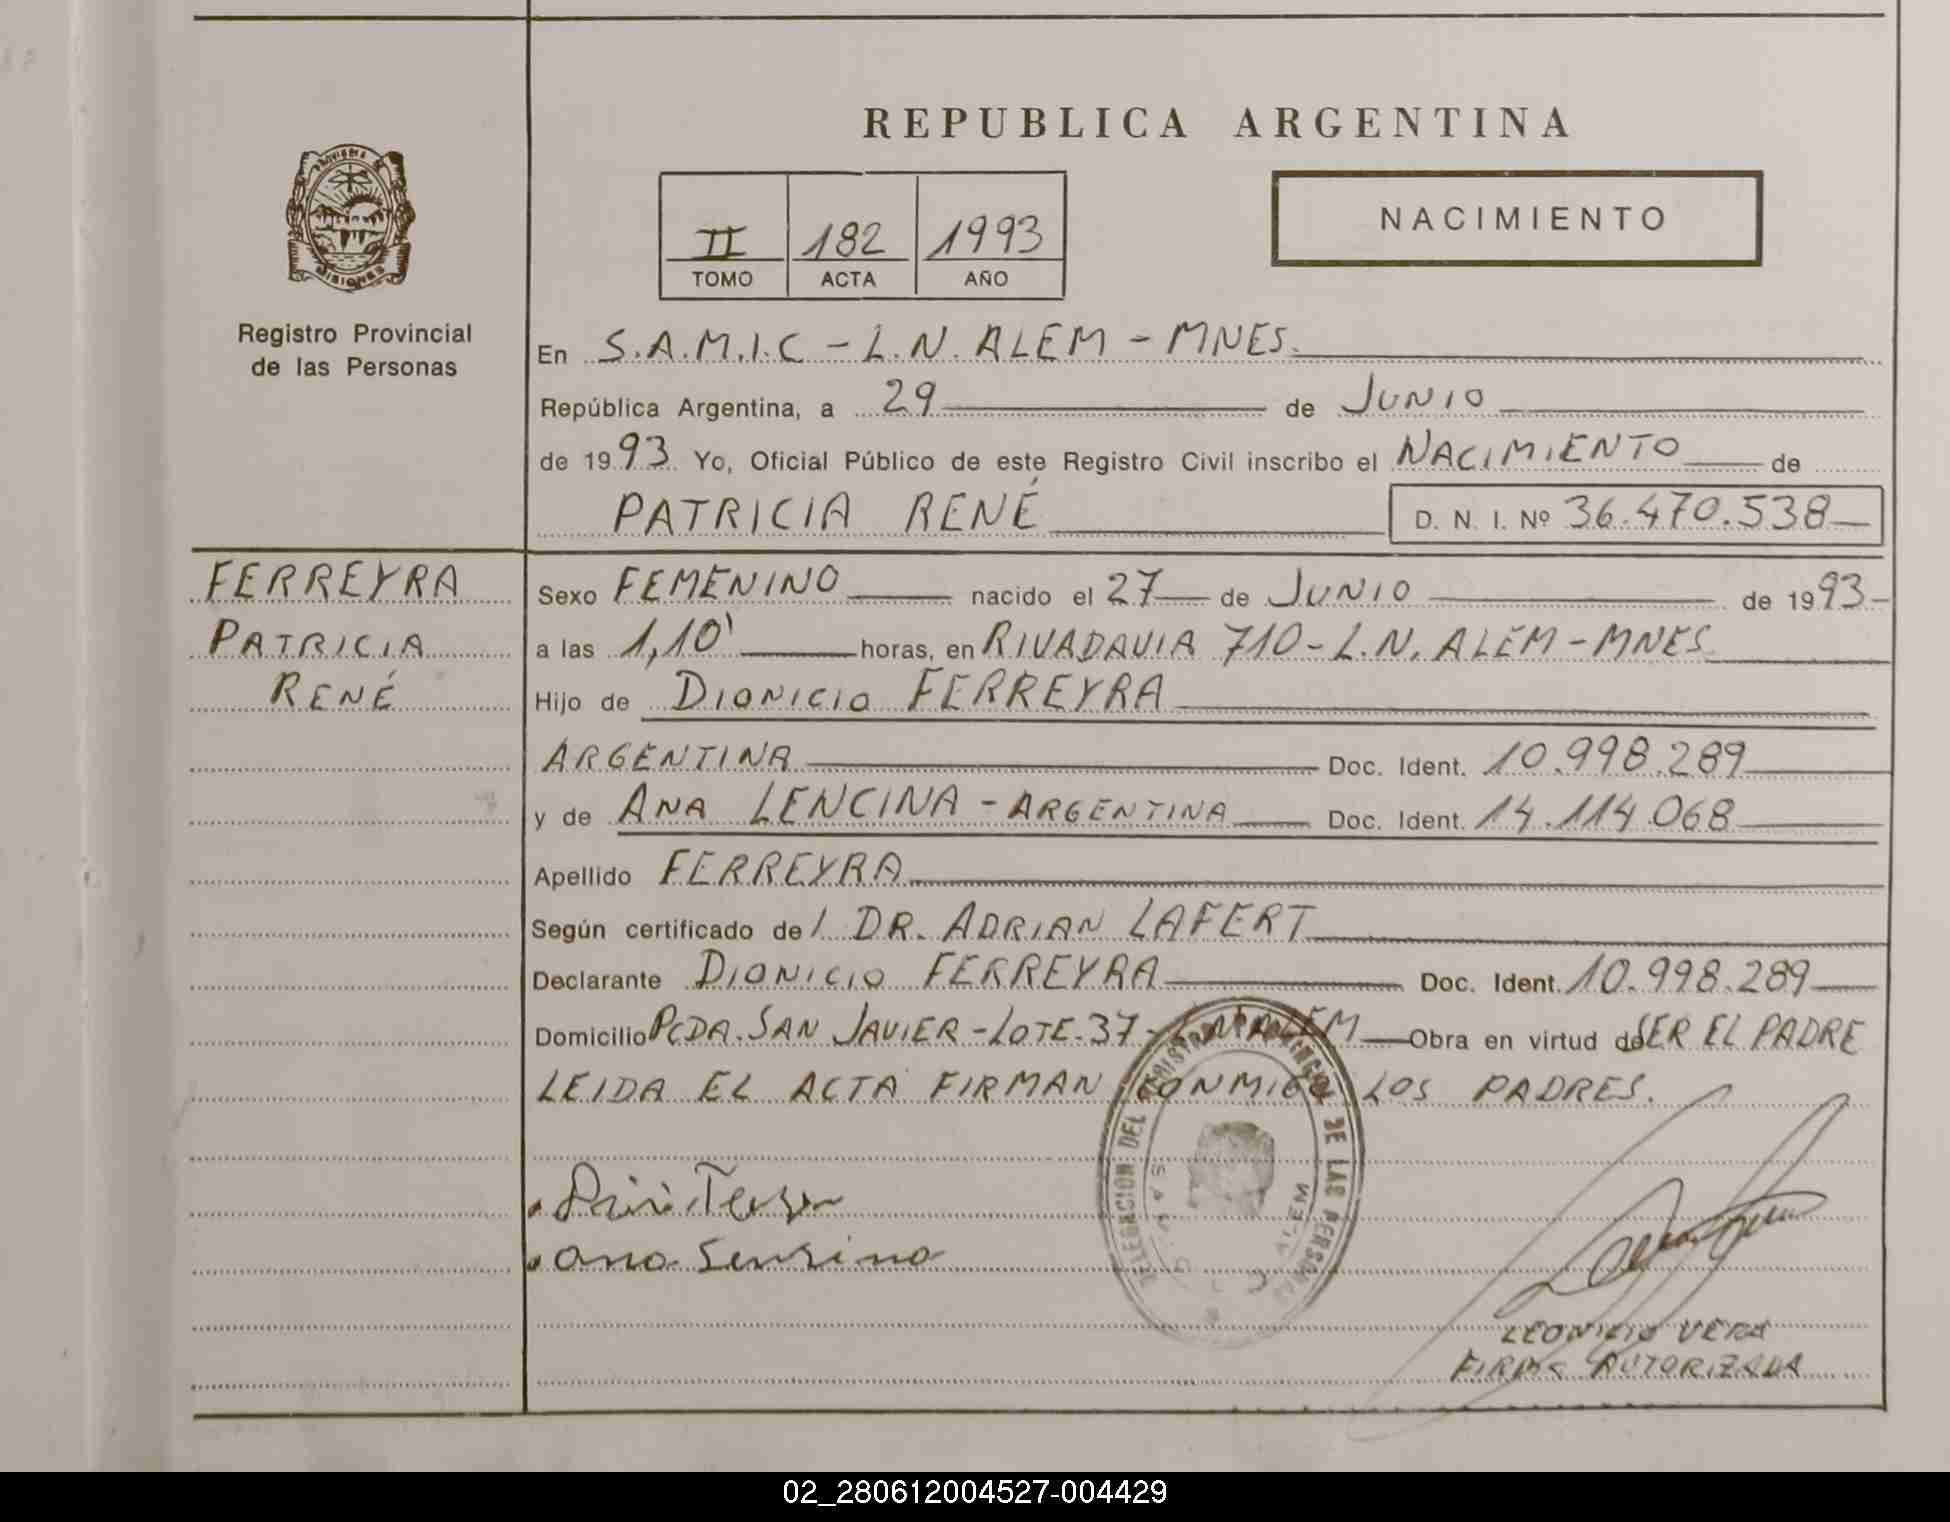 REPUBLICA ARGENTINA
PROVINCIA DE
MISIONES
Registro Provincial
de las Personas
II 182 1993
TOMO ACTA AÑO
NACIMIENTO
En S.A.M.I.C - L.N. ALEM - MNES.
República Argentina, a 29 de JUNIO
de 1993 Yo, Oficial Público de este Registro Civil inscribo el NACIMIENTO de
PATRICIA RENÉ D. N. I. Nº 36.470.538
FERREYRA
PATRICIA
RENÉ
Sexo FEMENINO nacido el 27 de JUNIO de 1993
a las 1,10' horas, en RIVADAVIA 710 - L.N. ALEM - MNES
Hijo de DIONICIO FERREYRA
ARGENTINA Doc. Ident. 10.998.289
y de ANA LENCINA - ARGENTINA Doc. Ident. 14.114.068
Apellido FERREYRA
Según certificado del DR. ADRIAN LAFERT
Declarante DIONICIO FERREYRA Doc. Ident. 10.998.289
Domicilio PCDA. SAN JAVIER - LOTE. 37 - L.N. ALEM Obra en virtud de SER EL PADRE
LEIDA EL ACTA FIRMAN CONMIGO LOS PADRES.
DELEGACION DEL REGISTRO PROVINCIAL DE LAS PERSONAS
ALEM
LEONICIO VERA
FIRMA AUTORIZADA
02_280612004527-004429